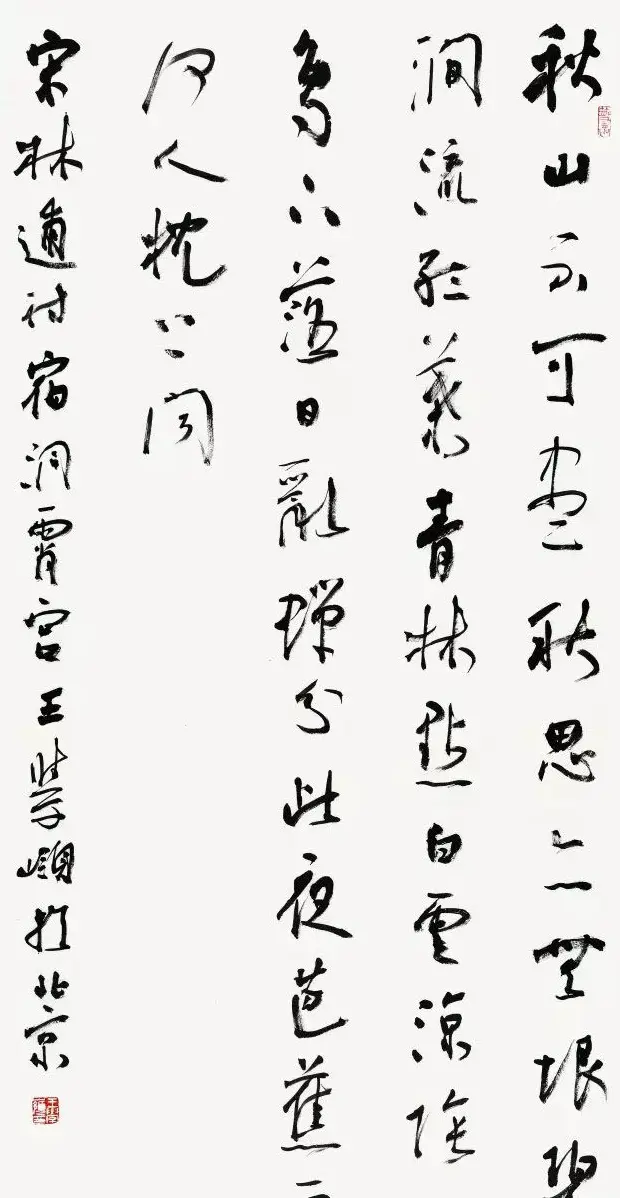 秋山不可盡秋思亦無垠碧
澗流紅葉青林點白雲涼陰
鳥下落日亂蟬分此夜芭蕉
何人枕上聞
宋林逋詩宿洞霄宮王學嶺於北京